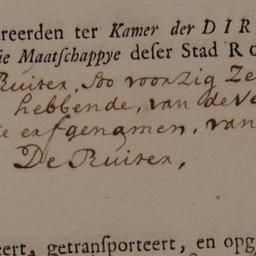 reerden ter Kamer der DIR
ie Maatſchappye deſer Stad Ro
Ruiter, Soo voor zig Ze
hebbende, van de Ve
e erfgenamen, van
De Ruiter,
eert, getranſporteert, en opg